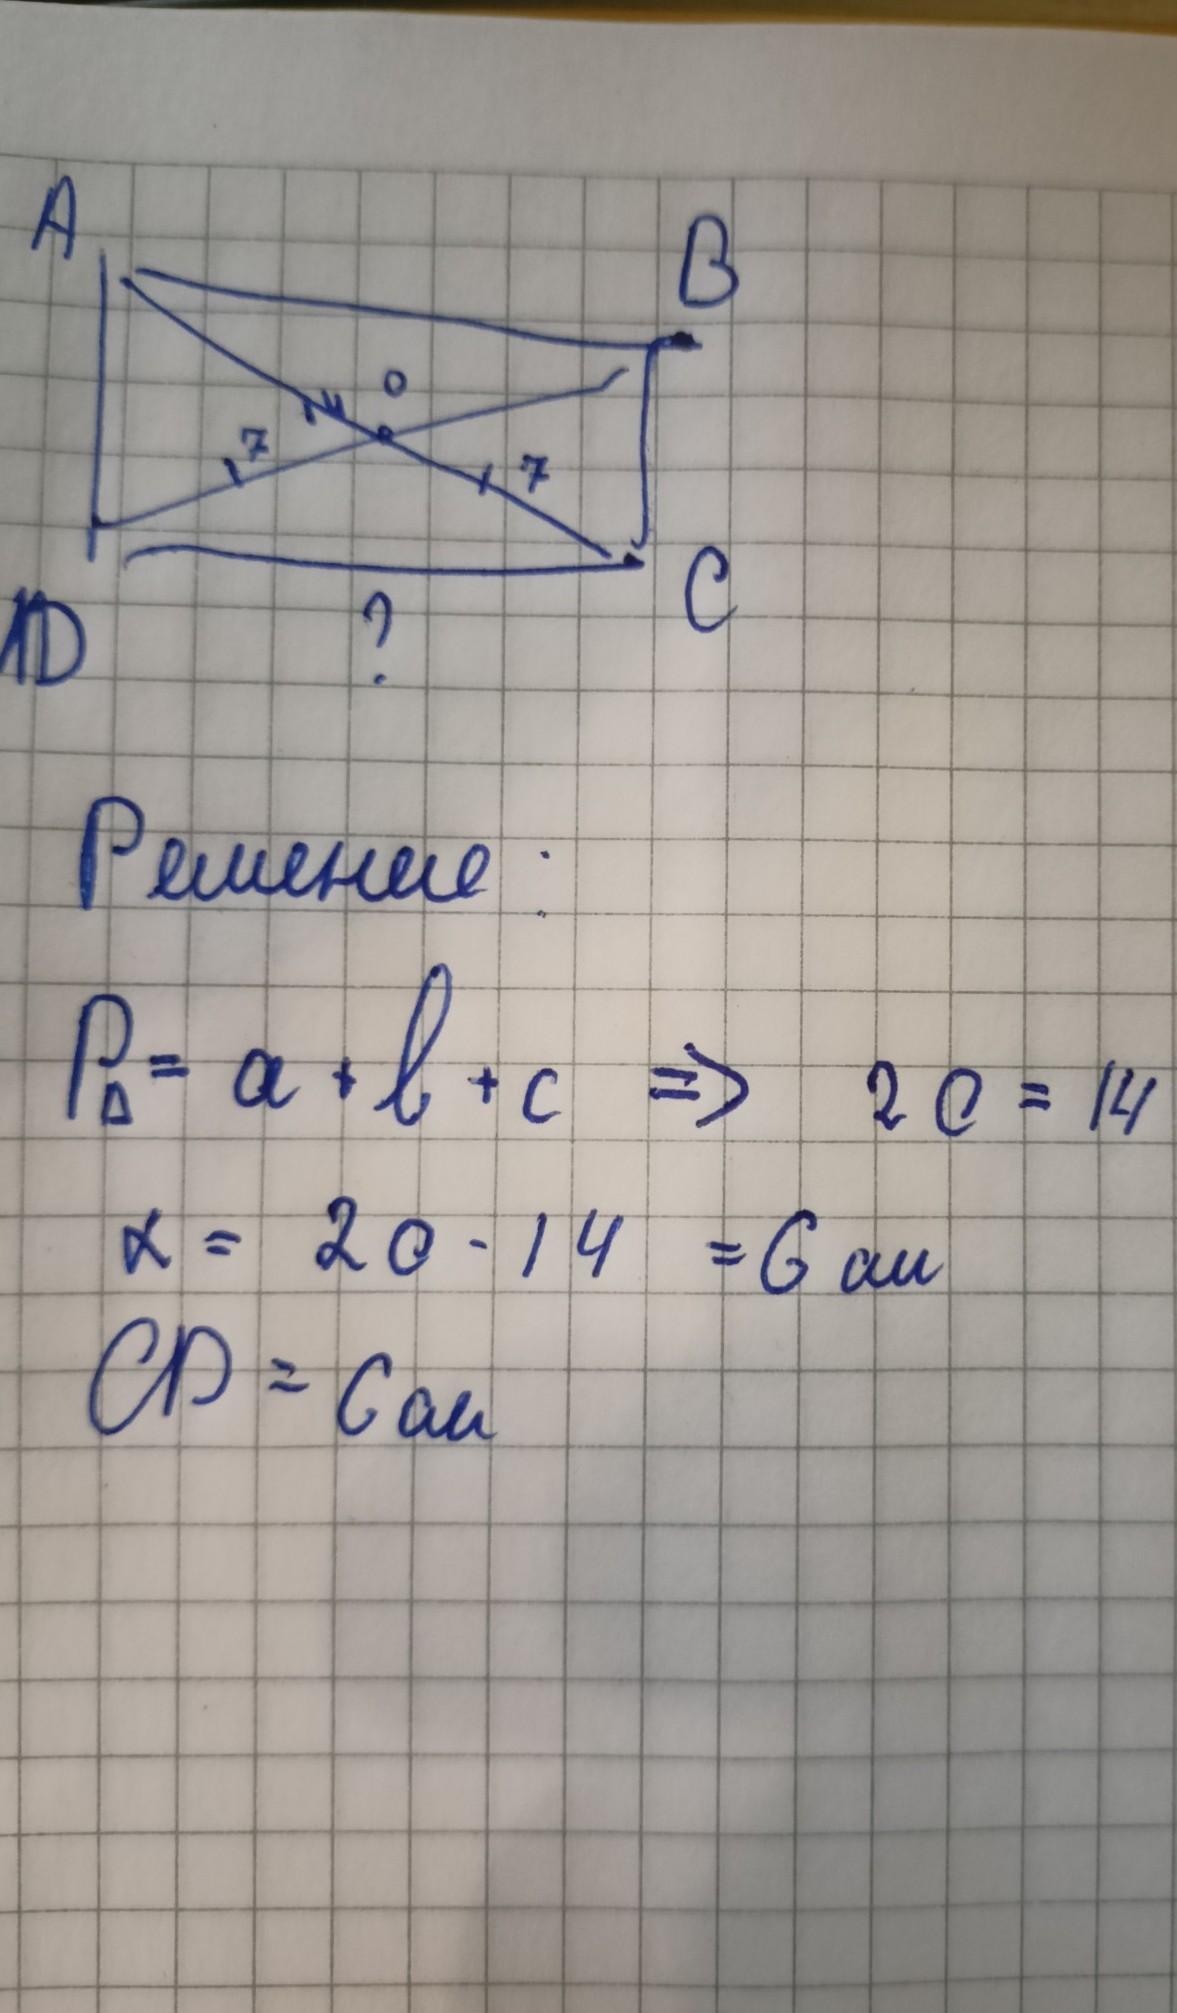 A
B
O
7
7
D
?
C
Решение:
P△ = a + b + c => 20 = 14
x = 20 - 14 = 6 см
CD = 6 см